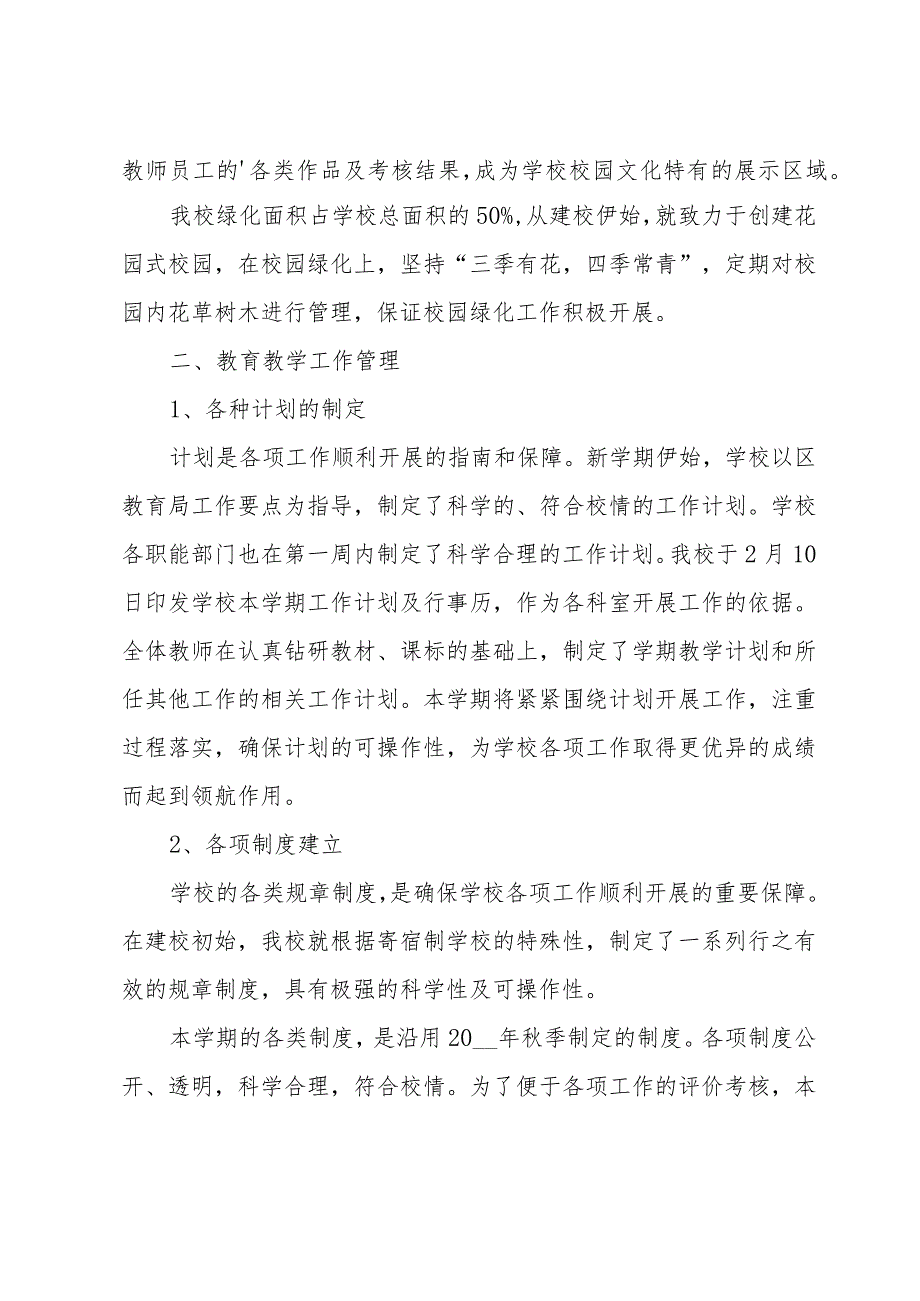 教师员工的'各类作品及考核结果,成为学校校园文化特有的展示区域。
我校绿化面积占学校总面积的50%,从建校伊始,就致力于创建花
园式校园，在校园绿化上，坚持“三季有花，四季常青”，定期对校
园内花草树木进行管理，保证校园绿化工作积极开展。
二、教育教学工作管理
1、各种计划的制定
计划是各项工作顺利开展的指南和保障。新学期伊始，学校以区
教育局工作要点为指导，制定了科学的、符合校情的工作计划。学校
各职能部门也在第一周内制定了科学合理的工作计划。我校于2月10
日印发学校本学期工作计划及行事历，作为各科室开展工作的依据。
全体教师在认真钻研教材、课标的基础上，制定了学期教学计划和所
任其他工作的相关工作计划。本学期将紧紧围绕计划开展工作，注重
过程落实，确保计划的可操作性，为学校各项工作取得更优异的成绩
而起到领航作用。
2、各项制度建立
学校的各类规章制度,是确保学校各项工作顺利开展的重要保障。
在建校初始，我校就根据寄宿制学校的特殊性，制定了一系列行之有
效的规章制度，具有极强的科学性及可操作性。
本学期的各类制度，是沿用20__年秋季制定的制度。各项制度公
开、透明，科学合理，符合校情。为了便于各项工作的评价考核，本